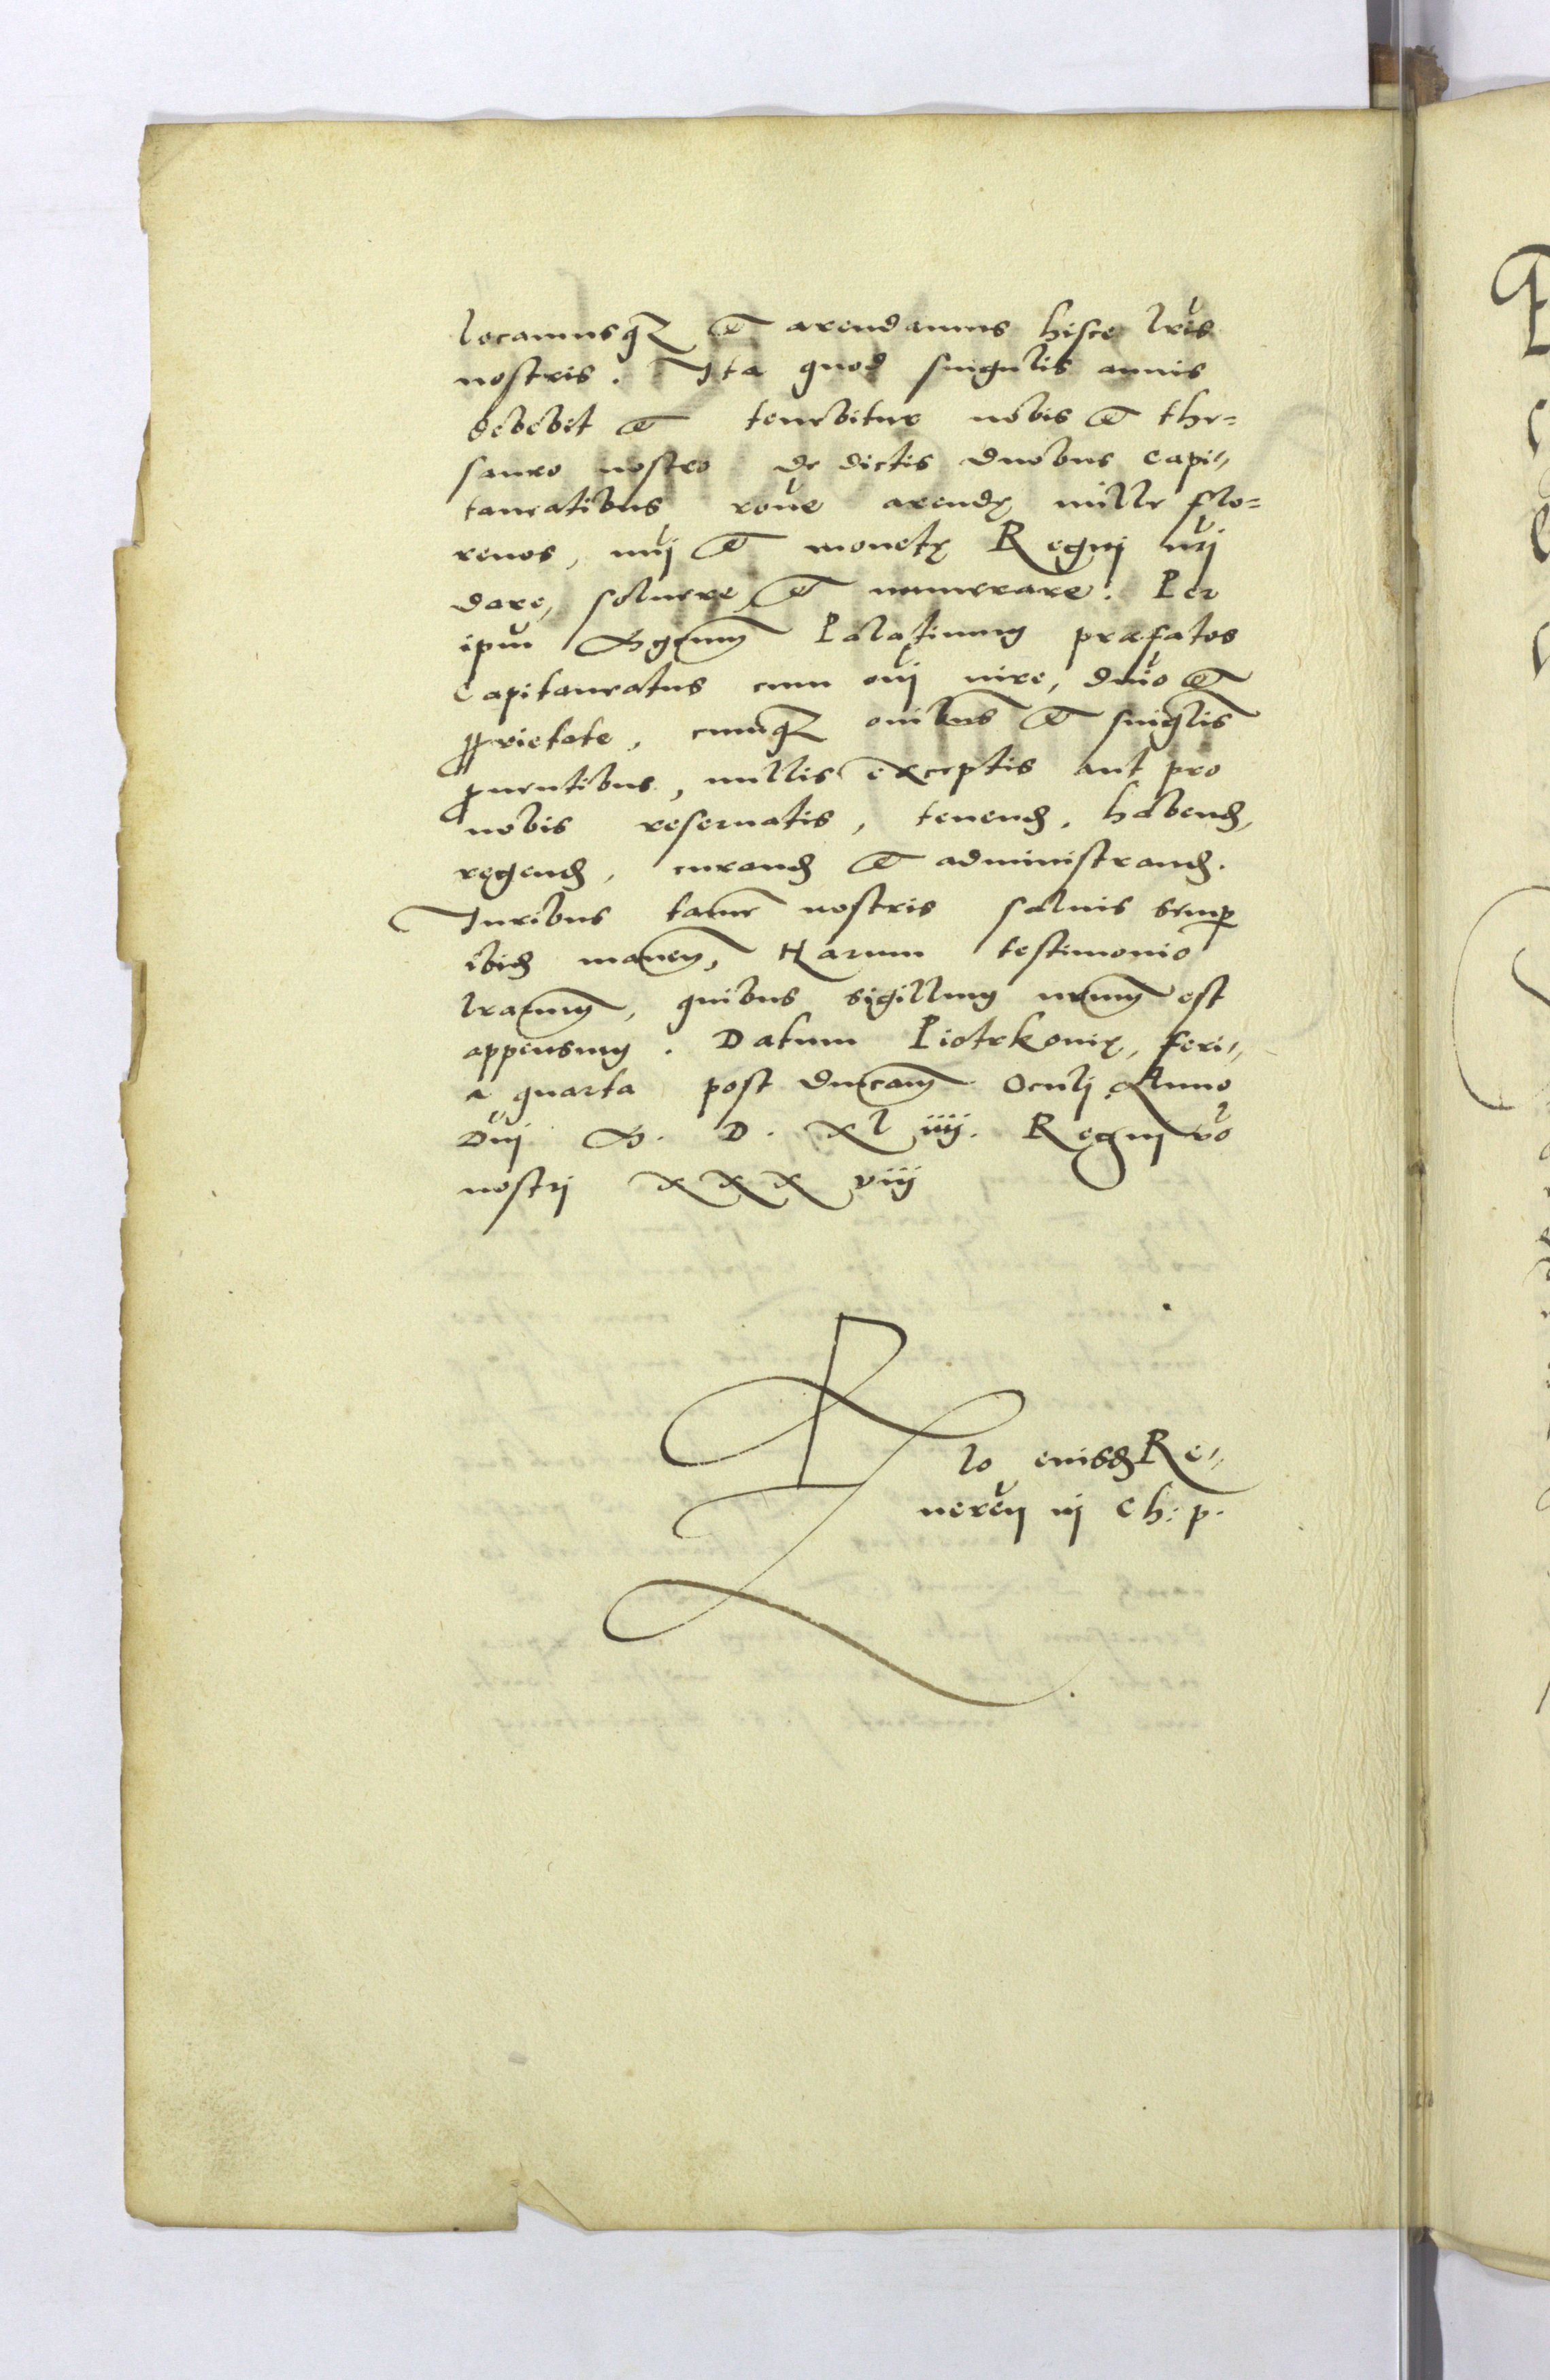 locamusq₃ et arendamus hisce lr̃is
nostris. Ita quod singulis annis
debebit et tenebitur nobis et the=
sauro nostro de dictis duobus Capi=
taneatibus roñe arendę mille flo=
renos, nũi et monetę Regni nr̃j
dare, soluere et numerare. Per
ipm̃ Mgcum Palatinum præfatos
Capitaneatus cum om̃j iure, dn̄io et
ꝓprietate, cumq₃ om̄ibus et sing̃lis
ꝓuentibus, nullis exceptis aut pro
nobis reseruatis, tenend, habend,
regend, curand et administrand.
Iuribus tamen nostris saluis semp
ibid manen, Harum testimonio
lrarum, quibus sigillum nrum est
appensum. Datum Piotrkouię, feri=
a quarta post dnicam Oculi Anno
Dn̄j M. D. XL iiij. Regni vo
nostrj XXX viij
R
lo eiusd Re=
ueren nj Ch: p.